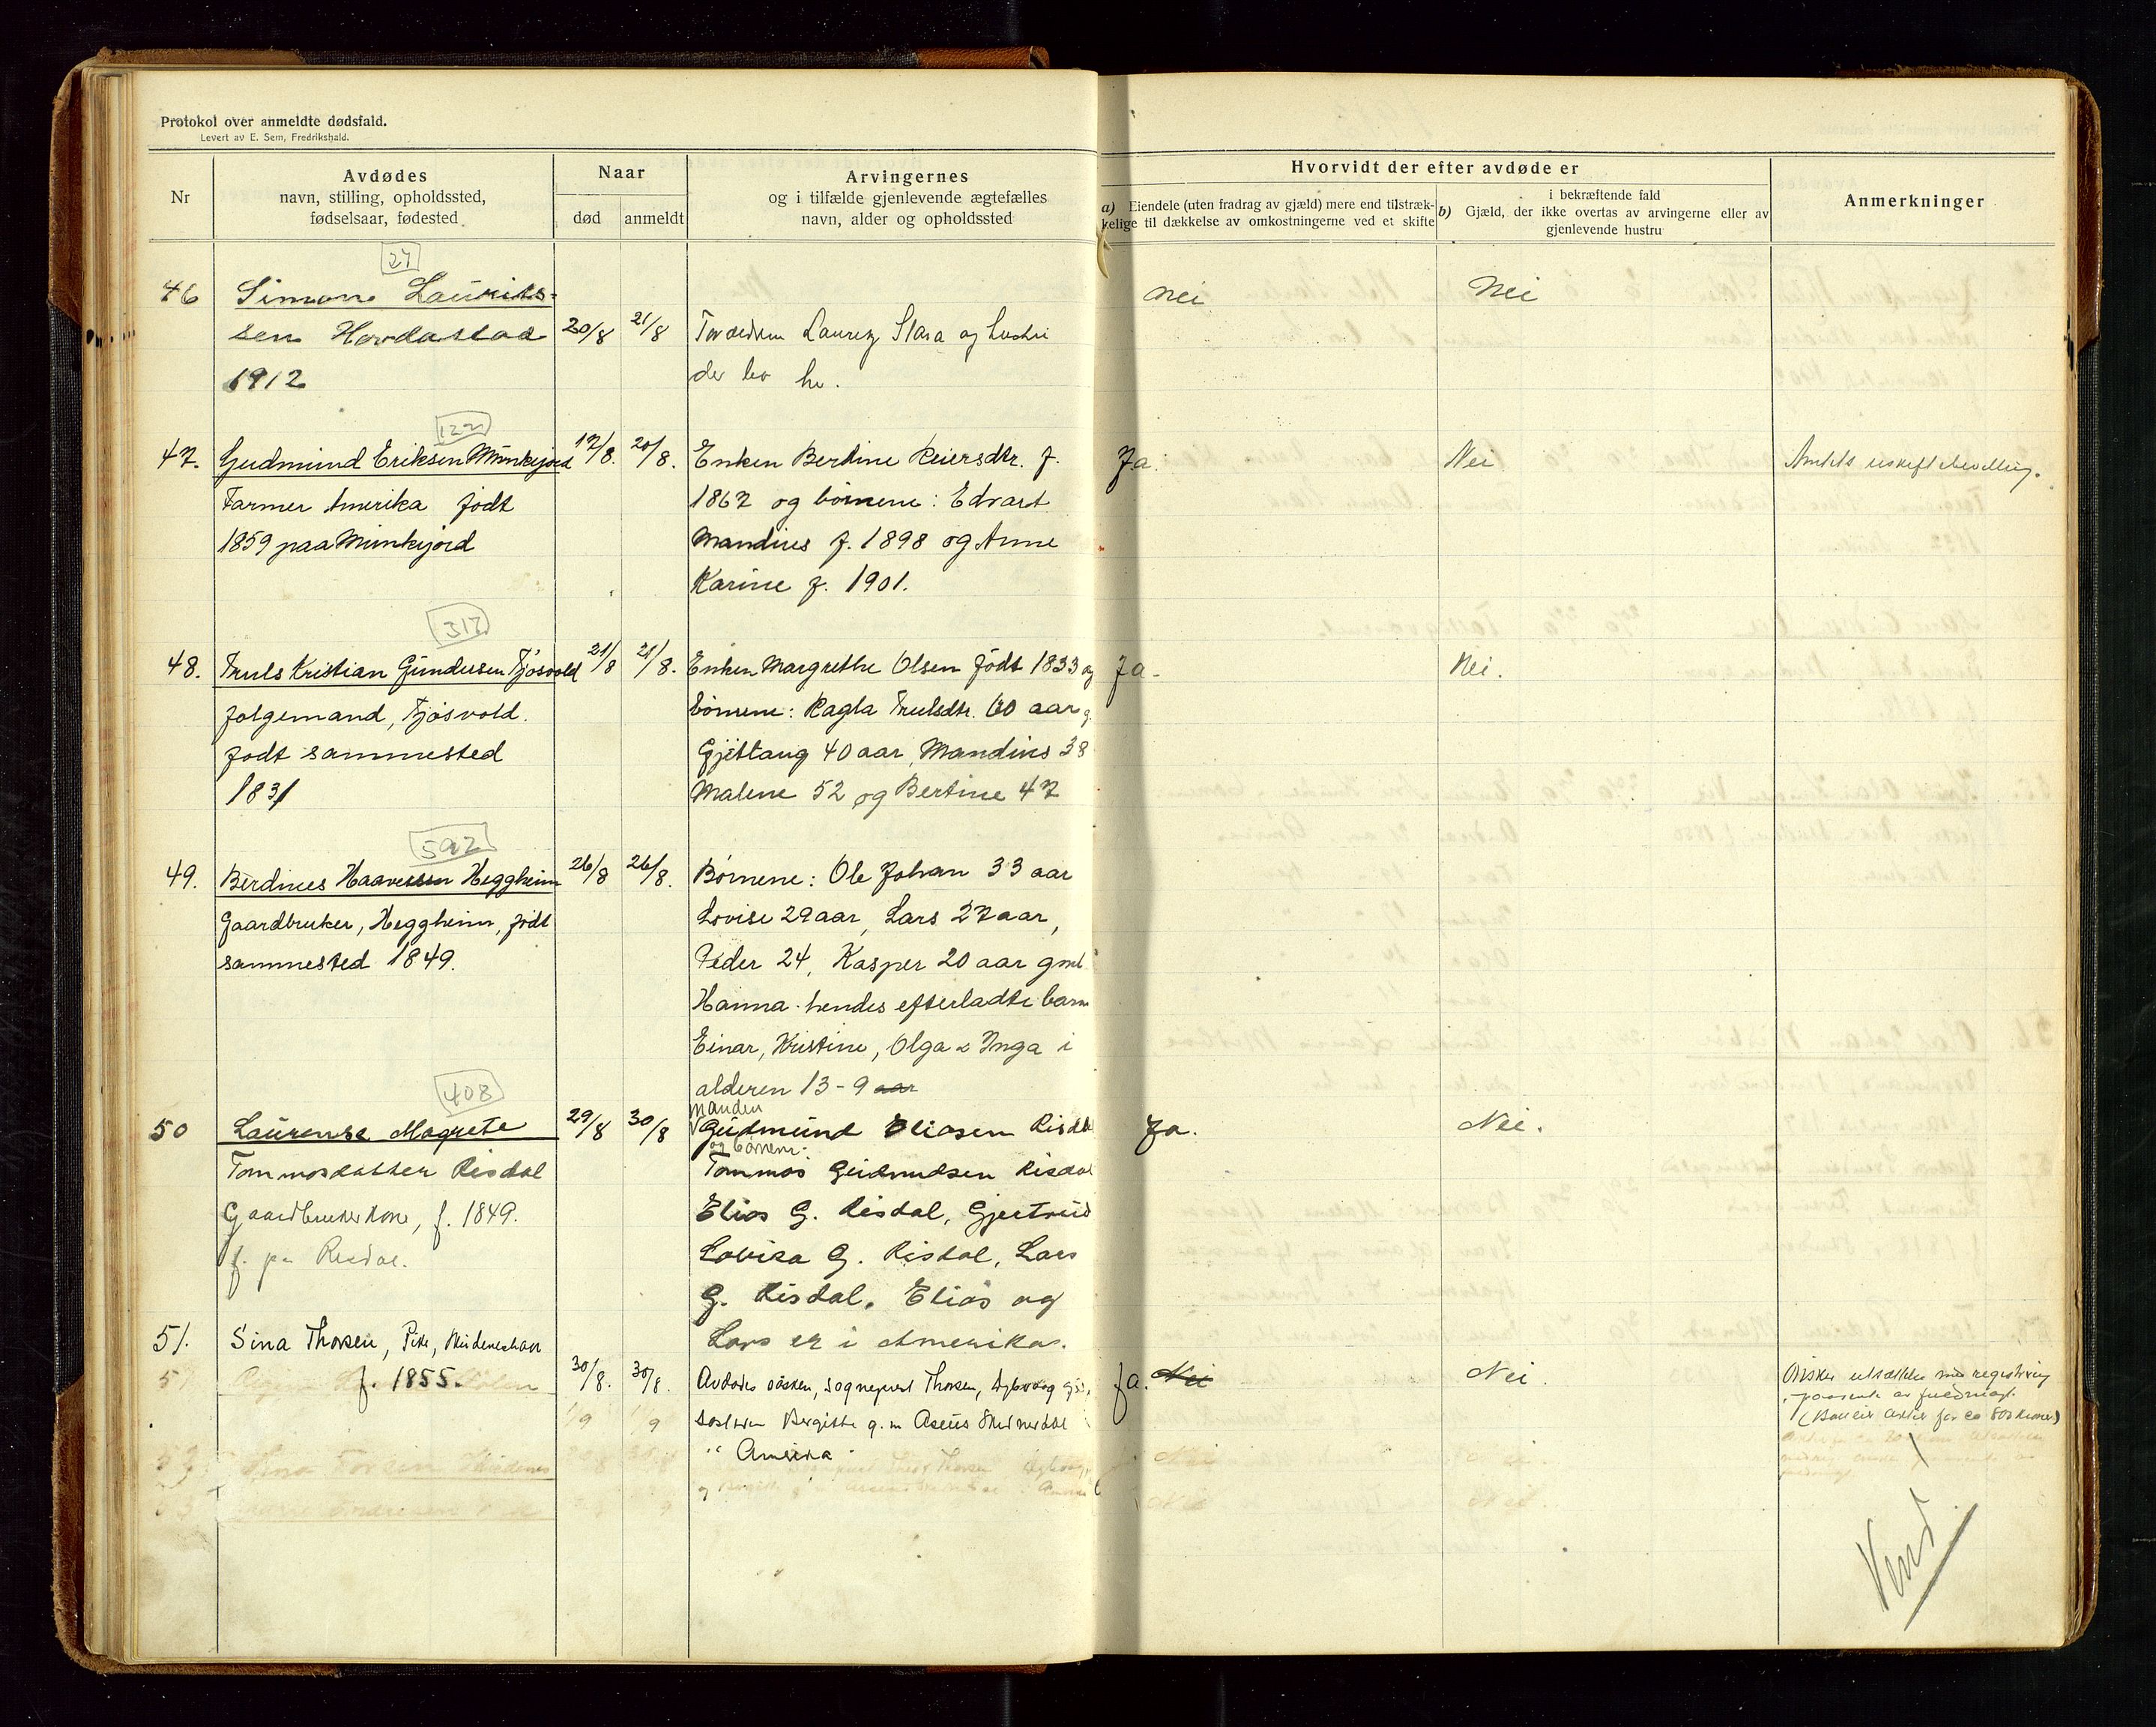 Protokol over anmeldte dødsfald.
Levert av E. Sem, Fredrikshald.
Nr
Avdødes
navn, stilling, opholdssted,
fødselsaar, fødested
Naar
død
anmeldt
Arvingernes
og i tilfælde gjenlevende ægtefælles
navn, alder og opholdssted
Hvorvidt der efter avdøde er
a) Eiendele (uten fradrag av gjæld) mere end tilstræk-
kelige til dækkelse av omkostningerne ved et skifte
i bekræftende fald
b) Gjæld, der ikke overtas av arvingerne eller av
gjenlevende hustru
Anmerkninger
27
46
Simon Laurits-
sen Hovdastad
1912
20/8
21/8
der lev
nei
Nei
122
47.
Gudmund Eriksen Munkejord
Farmer Amerika født
1859 paa Munkejord
17/8.
20/8.
Enken Bertine Reiersdtr. f.
1867 og børnene: Edvart
Mandius f. 1898 og Anne
Karine f. 1901.
Ja.
Nei
317
48.
Truls Kristian Gundersen Tjøsvold
folgemand, Tjøsvold.
født sammested
1831
21/8
21/8.
Enken Margrethe Olsen født 1833 og
børnene: Ragla Trulsdtr. 60 aar g.
Gjettaug 40 aar, Mandius 38
Malene 52 og Bertine 47
Ja.
Nei.
592
49.
Berdines Haavessen Heggheim
Gaardbruker, Heggheim, født
sammested 1849.
26/8
26/8.
Børnene: Ole Johan 33 aar
Lovise 29 aar, Lars 27 aar,
Peder 24, Kasper 20 aar
Hanna hendes efterladte barn
Einar, Kristine, Olga & Inga i
alderen 13-9 aar
408
50
Laurense Magrete
Tommosdatter Risdal
Gaardbrukerkone, f. 1849.
f. pa Risdal.
29/8
30/8
manden
Gudmund Eliasen Risdal
og børnene:
Tommos Gudmudsen Risdal
Elias G. Risdal, Gjertrud
Lovisa G. Risdal, Lars
G. Risdal. Elias og
Lars er i Amerika.
Ja.
Nei.
51.
Sina Thorsen, Pike,
f. 1855.
30/8.
30/8.
Avdødes søsken, sogneprest Thorsen,
søsteren Bergitte g. m
" Amerika
Ja. Nei
Nei.
Ønsker utstedelse
1/9
9
Nei
Nei
Vend